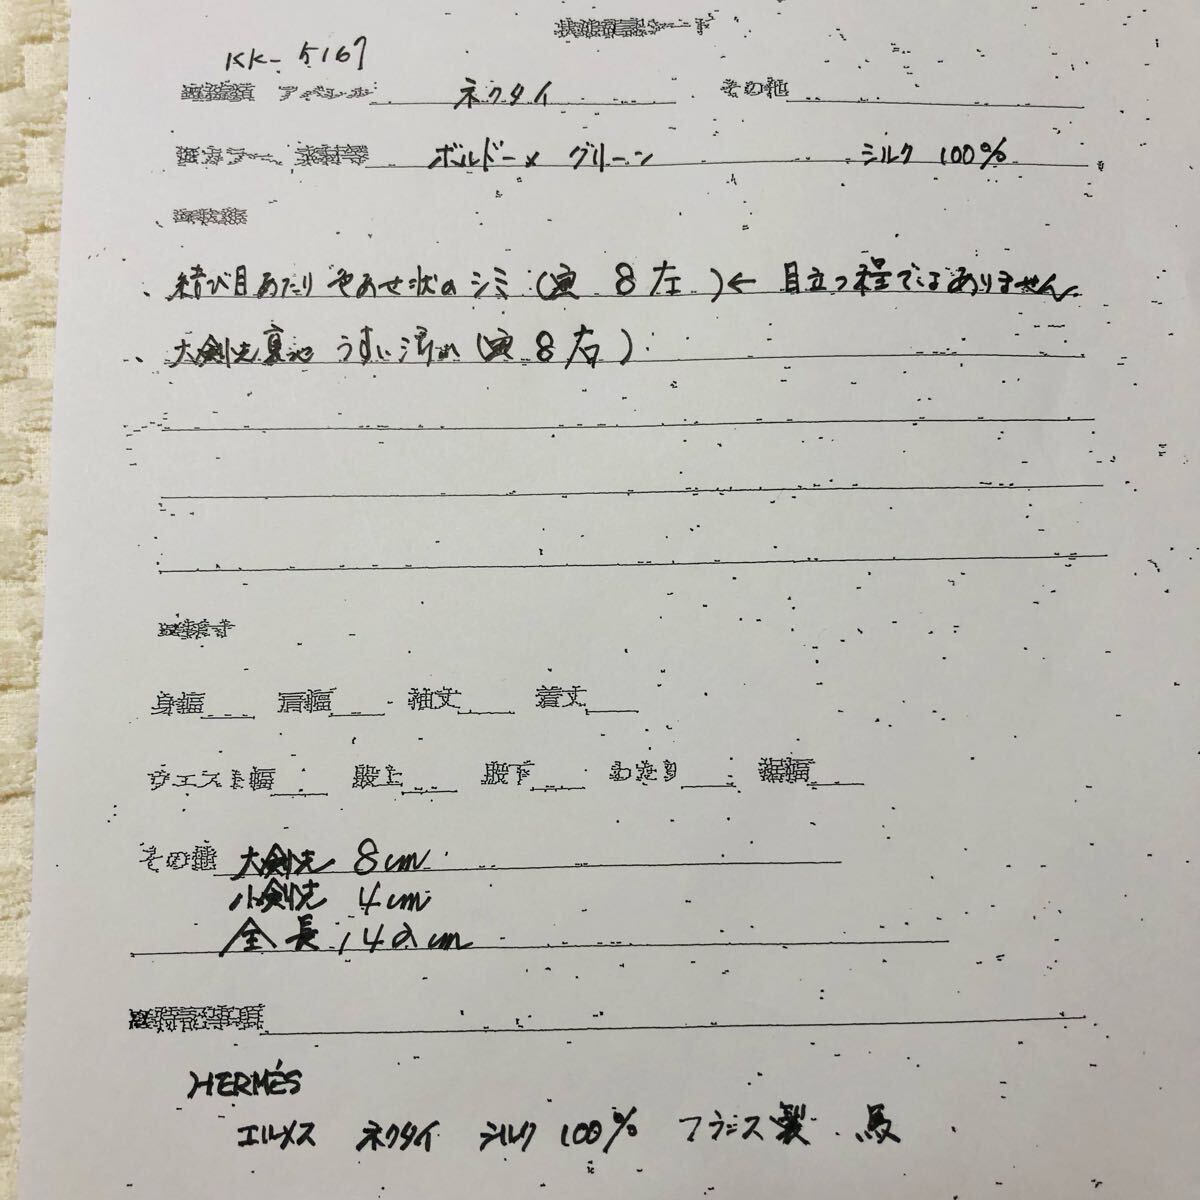 状態確認シート
KK-5167
アパレル ネクタイ その他
カラー、素材等 ボルドー× グリーン シルク 100%
、結び目あたり 色あせ状のシミ (寅 8 左) ← 目立つ程ではありません。
、大剣先裏地 うすい汚れ (寅 8 右)
身幅 肩幅 袖丈 着丈
ウエスト幅 股上 股下 わたり 裾幅
その他 大剣先 8cm
小剣先 4cm
全長 142cm
※特記事項
HERMÉS
エルメス ネクタイ シルク 100% フランス製 馬